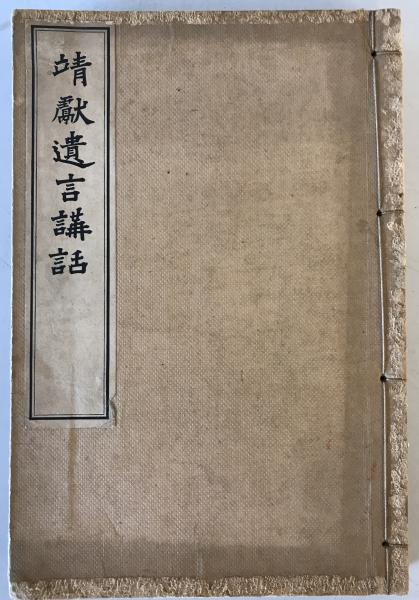 靖獻遺言講話